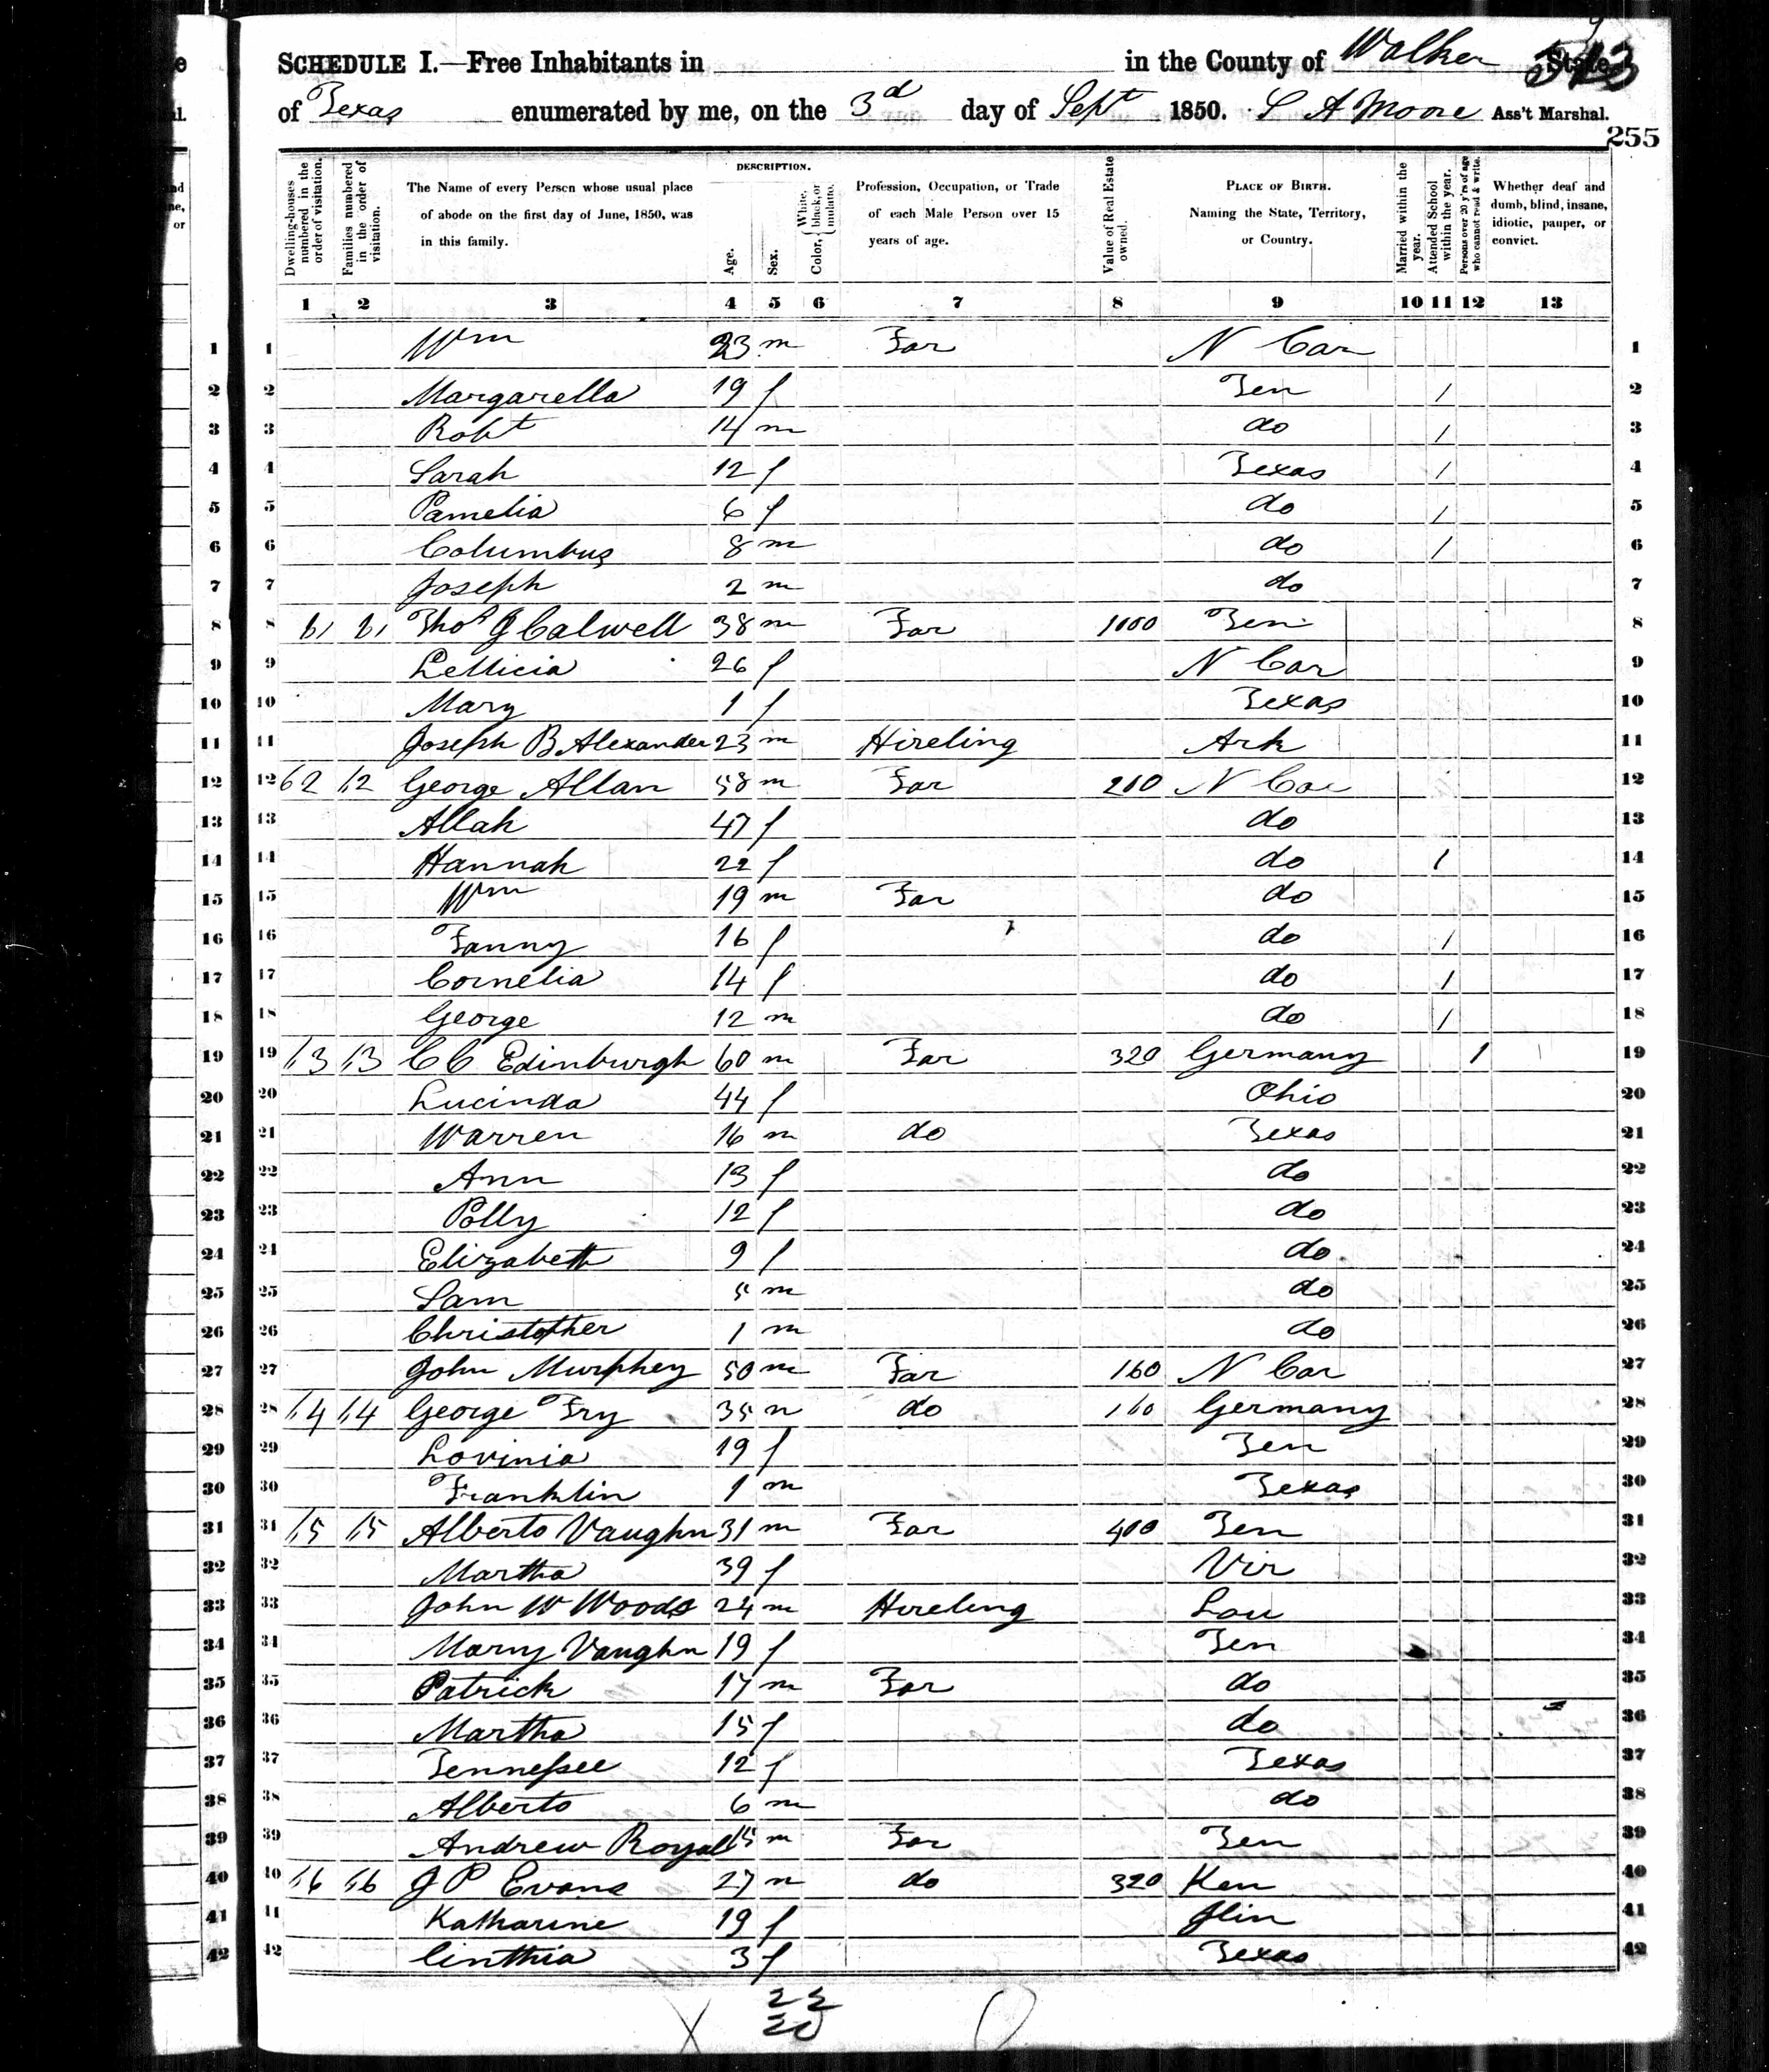 SCHEDULE I.—Free Inhabitants in in the County of Walker State
of Texas enumerated by me, on the 3d day of Sept 1850. S A Moore Ass't Marshal.
255
Dwelling-houses numbered in the order of visitation.
Families numbered in the order of visitation.
The Name of every Person whose usual place of abode on the first day of June, 1850, was in this family.
DESCRIPTION.
Age.
Sex.
Color, { White, black, or mulatto.
Profession, Occupation, or Trade of each Male Person over 15 years of age.
Value of Real Estate owned.
PLACE OF BIRTH. Naming the State, Territory, or Country.
Married within the year.
Attended School within the year.
Persons over 20 y'rs of age who cannot read & write.
Whether deaf and dumb, blind, insane, idiotic, pauper, or convict.
1 2 3 4 5 6 7 8 9 10 11 12 13
1 1 Wm 23 m Far N Car 1
2 2 Margarella 19 f Ten / 2
3 3 Robt 14 m do / 3
4 4 Sarah 12 f Texas / 4
5 5 Pamelia 6 f do / 5
6 6 Columbus 8 m do / 6
7 7 Joseph 2 m do 7
8 8 61 61 Thos J Calwell 38 m Far 1000 Ten 8
9 9 Letticia 26 f N Car 9
10 10 Mary 1 f Texas 10
11 11 Joseph B Alexander 23 m Hireling Ark 11
12 12 62 62 George Allan 58 m Far 200 N Car 12
13 13 Allah 47 f do 13
14 14 Hannah 22 f do 1 14
15 15 Wm 19 m Far do 15
16 16 Fanny 16 f do / 16
17 17 Cornelia 14 f do / 17
18 18 George 12 m do / 18
19 19 63 63 C C Edinburgh 60 m Far 320 Germany 1 19
20 20 Lucinda 44 f Ohio 20
21 21 Warren 16 m do Texas 21
22 22 Ann 13 f do 22
23 23 Polly 12 f do 23
24 24 Elizabeth 9 f do 24
25 25 Sam 5 m do 25
26 26 Christopher 1 m do 26
27 27 John Murphey 50 m Far 160 N Car 27
28 28 64 64 George Fry 35 m do 160 Germany 28
29 29 Lovinia 19 f Ten 29
30 30 Franklin 1 m Texas 30
31 31 65 65 Alberto Vaughn 31 m Far 400 Ten 31
32 32 Martha 39 f Vir 32
33 33 John W Woods 24 m Hireling Lou 33
34 34 Mary Vaughn 19 f Ten 34
35 35 Patrick 17 m Far do 35
36 36 Martha 15 f do 36
37 37 Tennessee 12 f Texas 37
38 38 Alberto 6 m do 38
39 39 Andrew Royall 15 m Far Ten 39
40 40 66 66 J P Evans 27 m do 320 Ken 40
41 41 Katharine 19 f 41
42 42 Cinthia 3 f Texas 42
22
20